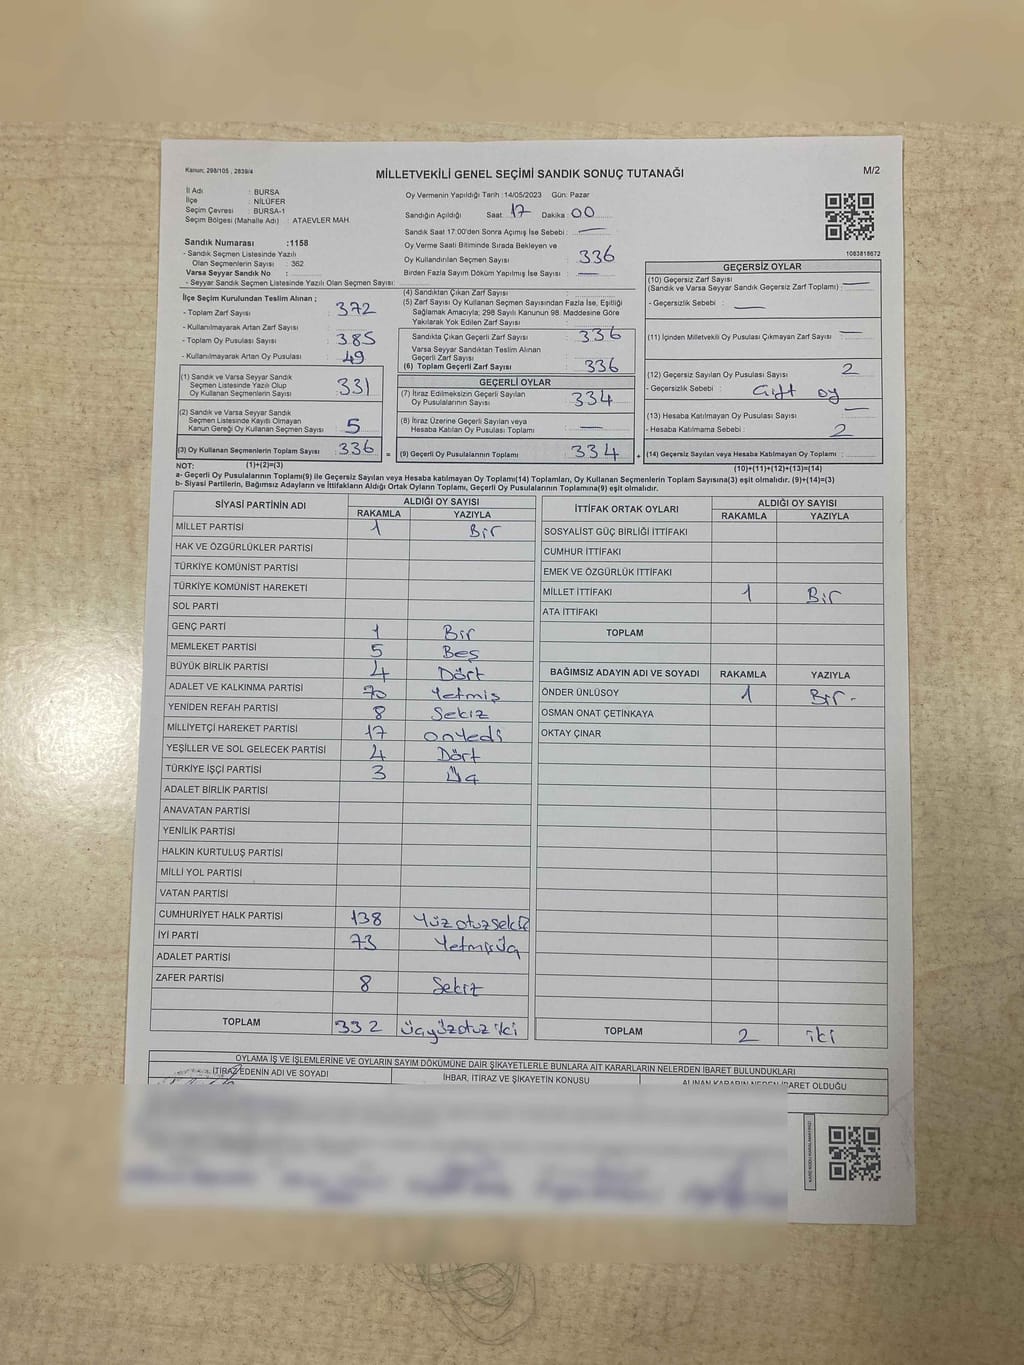 Kanun; 298/105 , 2839/4
MİLLETVEKİLİ GENEL SEÇİMİ SANDIK SONUÇ TUTANAĞI
M/2
İl Adı : BURSA
İlçe : NİLÜFER
Seçim Çevresi : BURSA-1
Seçim Bölgesi (Mahalle Adı) : ATAEVLER MAH
Sandık Numarası :1158
- Sandık Seçmen Listesinde Yazılı
Olan Seçmenlerin Sayısı : 362
Varsa Seyyar Sandık No :
- Seyyar Sandık Seçmen Listesinde Yazılı Olan Seçmen Sayısı:
Oy Vermenin Yapıldığı Tarih :14/05/2023 Gün: Pazar
Sandığın Açıldığı Saat 17 Dakika 00
Sandık Saat 17:00'den Sonra Açılmış İse Sebebi : —
Oy Verme Saati Bitiminde Sırada Bekleyen ve
Oy Kullandırılan Seçmen Sayısı 336
Birden Fazla Sayım Döküm Yapılmış İse Sayısı : —
1083818672
İlçe Seçim Kurulundan Teslim Alınan ;
- Toplam Zarf Sayısı : 372
- Kullanılmayarak Artan Zarf Sayısı :
- Toplam Oy Pusulası Sayısı : 385
- Kullanılmayarak Artan Oy Pusulası : 49
(1) Sandık ve Varsa Seyyar Sandık
Seçmen Listesinde Yazılı Olup
Oy Kullanan Seçmenlerin Sayısı : 331
(2) Sandık ve Varsa Seyyar Sandık
Seçmen Listesinde Kayıtlı Olmayan
Kanun Gereği Oy Kullanan Seçmen Sayısı : 5
(3) Oy Kullanan Seçmenlerin Toplam Sayısı : 336
(4) Sandıktan Çıkan Zarf Sayısı :
(5) Zarf Sayısı Oy Kullanan Seçmen Sayısından Fazla İse, Eşitliği
Sağlamak Amacıyla; 298 Sayılı Kanunun 98. Maddesine Göre
Yakılarak Yok Edilen Zarf Sayısı :
Sandıkta Çıkan Geçerli Zarf Sayısı : 336
Varsa Seyyar Sandıktan Teslim Alınan
Geçerli Zarf Sayısı
(6) Toplam Geçerli Zarf Sayısı : 336
GEÇERLİ OYLAR
(7) İtiraz Edilmeksizin Geçerli Sayılan
Oy Pusulalarının Sayısı : 334
(8) İtiraz Üzerine Geçerli Sayılan veya
Hesaba Katılan Oy Pusulası Toplamı : —
= (9) Geçerli Oy Pusulalarının Toplamı : 334 +
GEÇERSİZ OYLAR
(10) Geçersiz Zarf Sayısı
(Sandık ve Varsa Seyyar Sandık Geçersiz Zarf Toplamı) : —
- Geçersizlik Sebebi : —
(11) İçinden Milletvekili Oy Pusulası Çıkmayan Zarf Sayısı : —
(12) Geçersiz Sayılan Oy Pusulası Sayısı : 2
- Geçersizlik Sebebi : Çift oy
(13) Hesaba Katılmayan Oy Pusulası Sayısı : —
- Hesaba Katılmama Sebebi : 2
(14) Geçersiz Sayılan veya Hesaba Katılmayan Oy Toplamı :
NOT: (1)+(2)=(3)
(10)+(11)+(12)+(13)=(14)
a- Geçerli Oy Pusulalarının Toplamı(9) ile Geçersiz Sayılan veya Hesaba Katılmayan Oy Toplamı(14) Toplamları, Oy Kullanan Seçmenlerin Toplam Sayısına(3) eşit olmalıdır. (9)+(14)=(3)
b- Siyasi Partilerin, Bağımsız Adayların ve İttifakların Aldığı Ortak Oyların Toplamı, Geçerli Oy Pusulalarının Toplamına(9) eşit olmalıdır.
SİYASİ PARTİNİN ADI ALDIĞI OY SAYISI
RAKAMLA YAZIYLA
MİLLET PARTİSİ 1 Bir
HAK VE ÖZGÜRLÜKLER PARTİSİ
TÜRKİYE KOMÜNİST PARTİSİ
TÜRKİYE KOMÜNİST HAREKETİ
SOL PARTİ
GENÇ PARTİ 1 Bir
MEMLEKET PARTİSİ 5 Beş
BÜYÜK BİRLİK PARTİSİ 4 Dört
ADALET VE KALKINMA PARTİSİ 70 Yetmiş
YENİDEN REFAH PARTİSİ 8 Sekiz
MİLLİYETÇİ HAREKET PARTİSİ 17 onyedi
YEŞİLLER VE SOL GELECEK PARTİSİ 4 Dört
TÜRKİYE İŞÇİ PARTİSİ 3 Üç
ADALET BİRLİK PARTİSİ
ANAVATAN PARTİSİ
YENİLİK PARTİSİ
HALKIN KURTULUŞ PARTİSİ
MİLLİ YOL PARTİSİ
VATAN PARTİSİ
CUMHURİYET HALK PARTİSİ 138 Yüzotuzsekiz
İYİ PARTİ 73 Yetmişüç
ADALET PARTİSİ
ZAFER PARTİSİ 8 Sekiz
TOPLAM 332 üçyüzotuz iki
İTTİFAK ORTAK OYLARI ALDIĞI OY SAYISI
RAKAMLA YAZIYLA
SOSYALİST GÜÇ BİRLİĞİ İTTİFAKI
CUMHUR İTTİFAKI
EMEK VE ÖZGÜRLÜK İTTİFAKI
MİLLET İTTİFAKI 1 Bir
ATA İTTİFAKI
TOPLAM
BAĞIMSIZ ADAYIN ADI VE SOYADI RAKAMLA YAZIYLA
ÖNDER ÜNLÜSOY 1 Bir -
OSMAN ONAT ÇETİNKAYA
OKTAY ÇINAR
TOPLAM 2 iki
OYLAMA İŞ VE İŞLEMLERİNE VE OYLARIN SAYIM DÖKÜMÜNE DAİR ŞİKAYETLERLE BUNLARA AİT KARARLARIN NELERDEN İBARET BULUNDUKLARI
İTİRAZ EDENİN ADI VE SOYADI
İHBAR, İTİRAZ VE ŞİKAYETİN KONUSU
ALINAN KARARIN NEDEN İBARET OLDUĞU